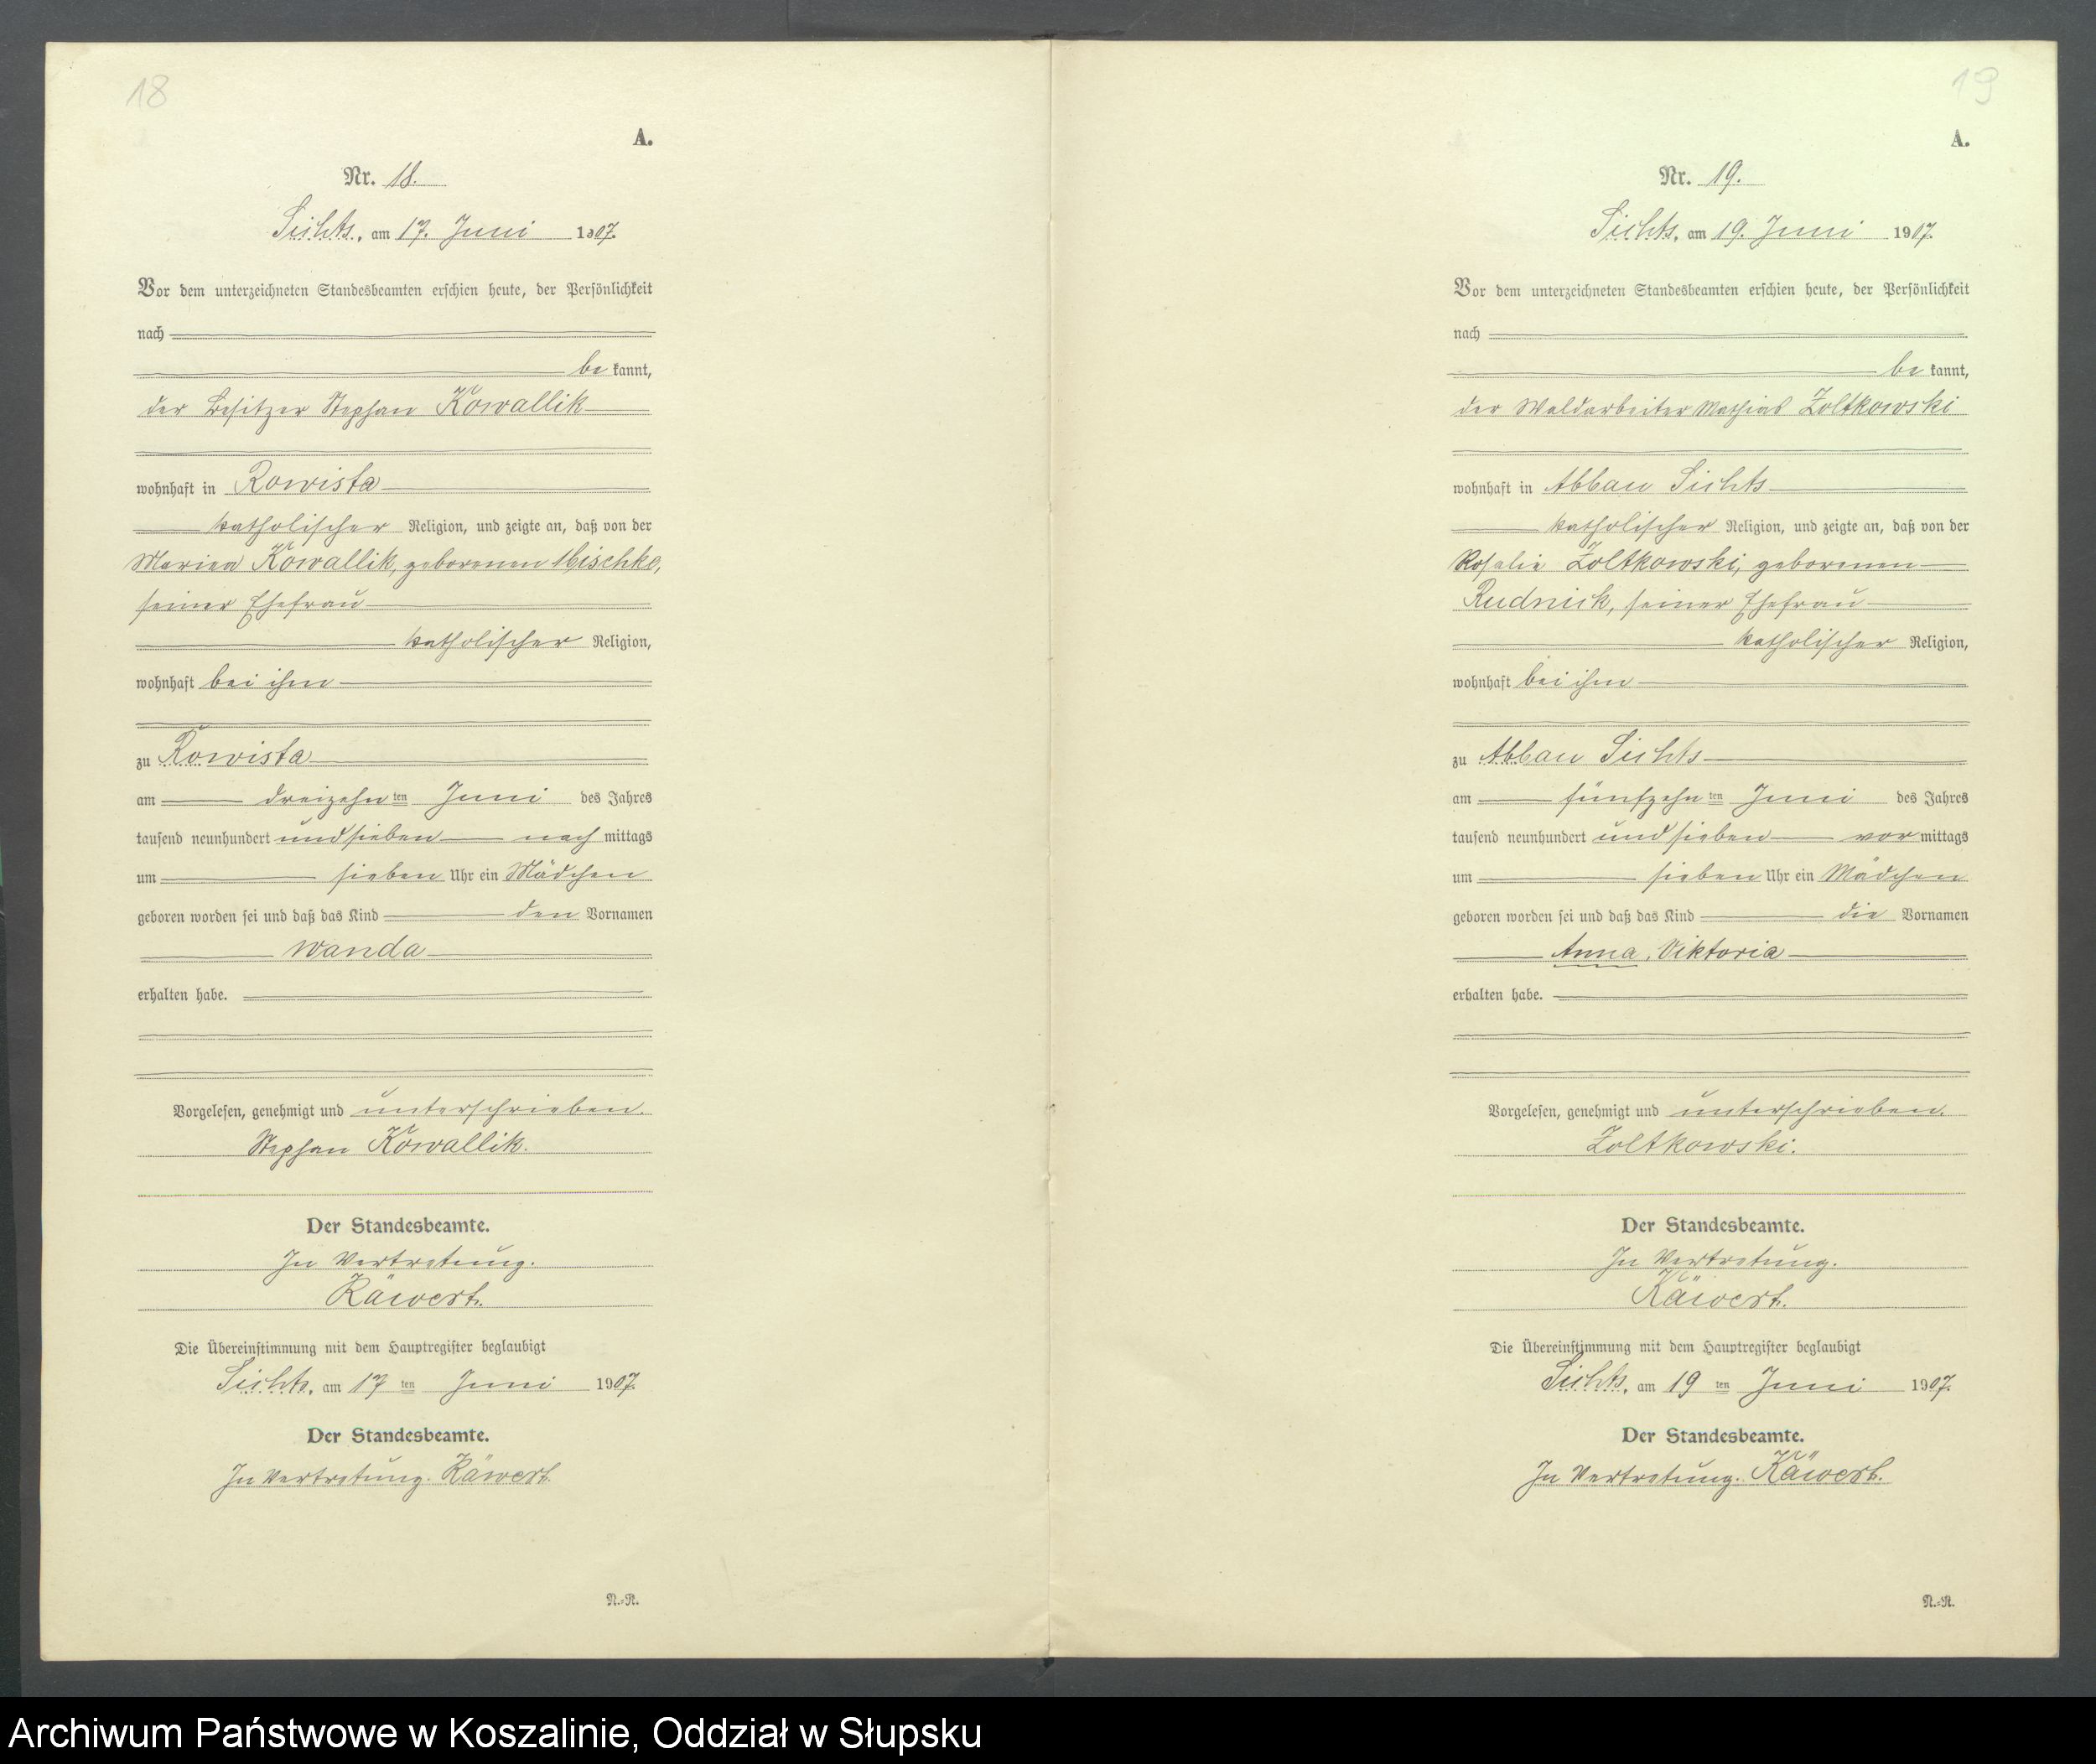 18
A.
Nr. 18.
Sichts, am 17. Juni 1907.
Vor dem unterzeichneten Standesbeamten erschien heute, der Persönlichkeit
nach
be kannt,
der Besitzer Stephan Kowallik
wohnhaft in Rowista
katholischer Religion, und zeigte an, daß von der
Marian Kowallik, geborenen Mischke,
seiner Ehefrau
katholischer Religion,
wohnhaft bei ihm
zu Rowista
am dreizehn ten Juni des Jahres
tausend neunhundert und sieben nach mittags
um sieben Uhr ein Mädchen
geboren worden sei und daß das Kind den Vornamen
Wanda
erhalten habe.
Vorgelesen, genehmigt und unterschrieben.
Stephan Kowallik.
Der Standesbeamte.
In Vertretung.
Räwert.
Die Übereinstimmung mit dem Hauptregister beglaubigt
Sichts, am 17 ten Juni 1907.
Der Standesbeamte.
In Vertretung. Räwert.
N.-R.
19
A.
Nr. 19.
Sichts, am 19. Juni 1907.
Vor dem unterzeichneten Standesbeamten erschien heute, der Persönlichkeit
nach
be kannt,
der Waldarbeiter Mathias Zoltkowski
wohnhaft in Abbau Sichts
katholischer Religion, und zeigte an, daß von der
Rosalie Zoltkowski, geborenen
Rudnick, seiner Ehefrau
katholischer Religion,
wohnhaft bei ihm
zu Abbau Sichts
am fünfzehn ten Juni des Jahres
tausend neunhundert und sieben vor mittags
um sieben Uhr ein Mädchen
geboren worden sei und daß das Kind die Vornamen
Anna, Viktoria
erhalten habe.
Vorgelesen, genehmigt und unterschrieben.
Zoltkowski.
Der Standesbeamte.
In Vertretung.
Räwert.
Die Übereinstimmung mit dem Hauptregister beglaubigt
Sichts, am 19 ten Juni 1907.
Der Standesbeamte.
In Vertretung. Räwert.
N.-R.
Archiwum Państwowe w Koszalinie, Oddział w Słupsku